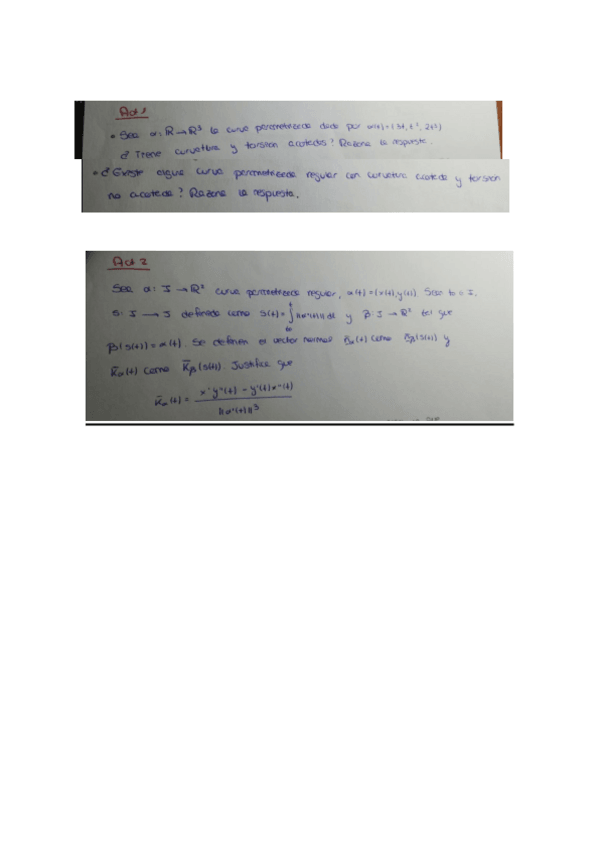 Act 1
• Sea α: R → R³ la curva parametrizada dada por α(t)=(3t, t³, 2t²)
¿ Tiene curvatura y torsión acotadas? Razona la respuesta.
• ¿ Existe alguna curva parametrizada regular con curvatura acotada y torsión
no acotada? Razona la respuesta.
Act 2
Sea α: I → R² curva parametrizada regular, α(t)=(x(t),y(t)) Sea t₀ ∈ I.
S: I → J definida como S(t)=∫ₜ₀ᵗ ||α'(t)|| dt y β: J → R² tal que
β(s(t)) = α(t). Se definen el vector normal α(t) como β(s(t)) y
K̄α(t) como K̄β(s(t)). Justifica que
K̄α(t) = x'y''(t) - y'(t)x''(t) / ||α'(t)||³